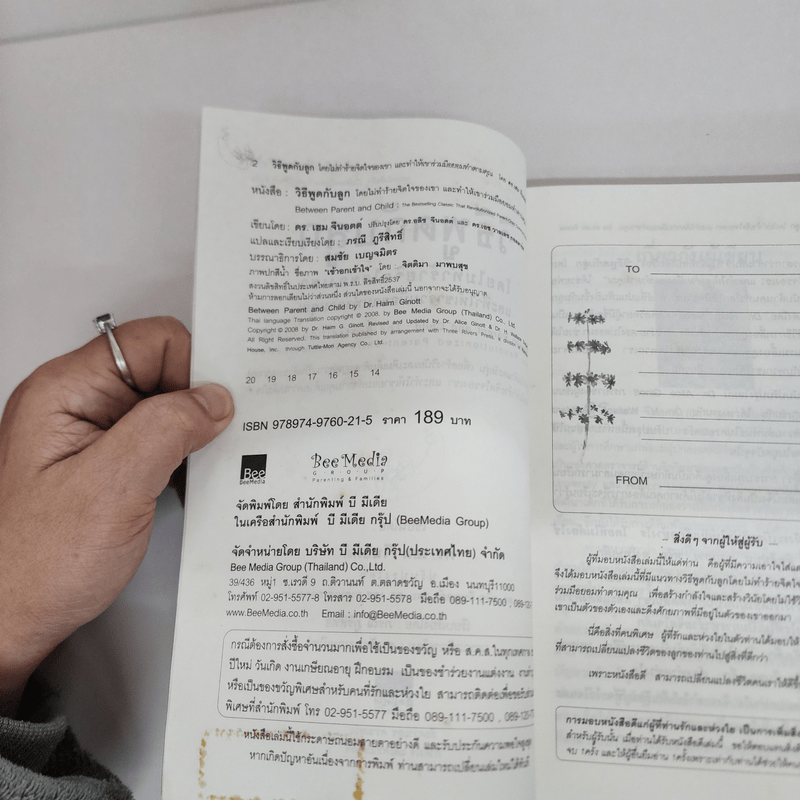 2 วิธีพูดกับลูก โดยไม่ทำร้ายจิตใจของเขา และทำให้เขาร่วมมือยอมทำตามคุณ
หนังสือ : วิธีพูดกับลูก โดยไม่ทำร้ายจิตใจของเขา และทำให้เขาร่วมมือยอมทำตามคุณ
Between Parent and Child : The Bestselling Classic That Revolutionized Parent
เขียนโดย : ดร. เฮม จีนอตต์ ปรับปรุงโดย ดร.อลิซ จีนอตต์ และ ดร.เอช
แปลและเรียบเรียงโดย : ภรณี ภูรีสิทธิ์
บรรณาธิการโดย : สมชัย เบญจมิตร
ภาพปกสีน้ำ ชื่อภาพ "เข้าอกเข้าใจ" โดย จิตติมา มาพบสุข
สงวนลิขสิทธิ์ในประเทศไทยตาม พ.ร.บ. ลิขสิทธิ์2537
ห้ามการลอกเลียนไม่ว่าส่วนหนึ่ง ส่วนใดของหนังสือเล่มนี้ นอกจากจะได้รับอนุญาต
Between Parent and Child by Dr. Haim Ginott
Thai language Translation copyright © 2008, by Bee Media Group (Thailand) Co., Ltd.
Copyright © 2008 by Dr. Haim G. Ginott, Revised and Updated by Dr. Alice Ginott & Dr. H.
All Right Reserved. This translation published by arrangement with Three Rivers Press, a division of
House, Inc. through Tuttle-Mori Agency Co., Ltd.
20 19 18 17 16 15 14
ISBN 978974-9760-21-5 ราคา 189 บาท
Bee
BeeMedia
Bee Media
GROUP
Parenting & Families
จัดพิมพ์โดย สำนักพิมพ์ บี มีเดีย
ในเครือสำนักพิมพ์ บี มีเดีย กรุ๊ป (BeeMedia Group)
จัดจำหน่ายโดย บริษัท บี มีเดีย กรุ๊ป(ประเทศไทย) จำกัด
Bee Media Group (Thailand) Co.,Ltd.
39/436 หมู่1 ซ.เรวดี 9 ถ.ติวานนท์ ต.ตลาดขวัญ อ.เมือง นนทบุรี11000
โทรศัพท์ 02-951-5577-8 โทรสาร 02-951-5578 มือถือ 089-111-7500 , 089-
www.BeeMedia.co.th Email : info@BeeMedia.co.th
กรณีต้องการสั่งซื้อจำนวนมากเพื่อใช้เป็นของขวัญ หรือ ส.ค.ส.ในทุกเทศกาล
ปีใหม่ วันเกิด งานเกษียณอายุ ฝึกอบรม เป็นของชำร่วยงานแต่งงาน
หรือเป็นของขวัญพิเศษสำหรับคนที่รักและห่วงใย สามารถติดต่อเพื่อขอรับ
พิเศษที่สำนักพิมพ์ โทร 02-951-5577 มือถือ 089-111-7500 , 089-111-
หนังสือเล่มนี้ใช้กระดาษถนอมสายตาอย่างดี และรับประกันความพอใจสูงสุด
หากเกิดปัญหาอันเนื่องจากการพิมพ์ ท่านสามารถเปลี่ยนเล่มใหม่ได้ทันที
TO
FROM
– สิ่งดีๆ จากผู้ให้สู่ผู้รับ
ผู้ที่มอบหนังสือเล่มนี้ให้แด่ท่าน คือผู้ที่มีความเอาใจใส่
จึงได้มอบหนังสือเล่มนี้ที่มีแนวทางวิธีพูดกับลูกโดยไม่ทำร้ายจิตใจ
ร่วมมือยอมทำตามคุณ เพื่อสร้างกำลังใจและสร้างวินัยโดยไม่ใช้
เขาเป็นตัวของตัวเองและดึงศักยภาพที่มีอยู่ในตัวของเขาออกมา
นี่คือสิ่งที่คนพิเศษ ผู้ที่รักและห่วงใยในตัวท่านได้มอบให้
ที่สามารถเปลี่ยนแปลงชีวิตของลูกของท่านไปสู่สิ่งที่ดีกว่า
เพราะหนังสือดี สามารถเปลี่ยนแปลงชีวิตคนเราให้ดีขึ้น
การมอบหนังสือดีแก่ผู้ที่ท่านรักและห่วงใย เป็นการเพิ่ม
สำหรับผู้รับนั้น เมื่อท่านได้รับหนังสือดีเล่มนี้
จบ 1ครั้ง และให้ผู้อื่นยืมอ่าน 1ครั้งเพราะเท่ากับท่านได้ช่วยให้